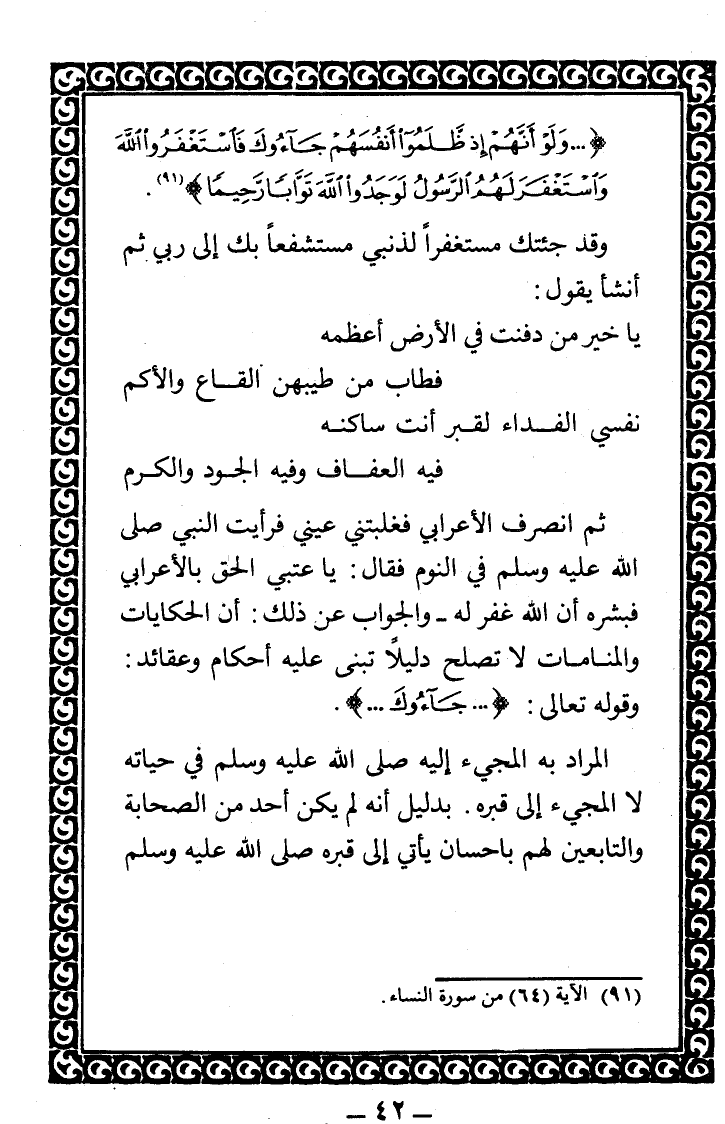 ﴿... وَلَوْ أَنَّهُمْ إِذ ظَّلَمُوٓا۟ أَنفُسَهُمْ جَآءُوكَ فَٱسْتَغْفَرُوا۟ ٱللَّهَ
وَٱسْتَغْفَرَ لَهُمُ ٱلرَّسُولُ لَوَجَدُوا۟ ٱللَّهَ تَوَّابًا رَّحِيمًا﴾ (٩١) .
وقد جئتك مستغفراً لذنبي مستشفعاً بك إلى ربي ثم
أنشأ يقول :
يا خير من دفنت في الأرض أعظمه
فطاب من طيبهن القـاع والأكم
نفسي الفـداء لقبر أنت ساكنه
فيه العفـاف وفيه الجود والكرم
ثم انصرف الأعرابي فغلبتني عيني فرأيت النبي صلى
الله عليه وسلم في النوم فقال : يا عتبي الحق بالأعرابي
فبشره أن الله غفر له ـ والجواب عن ذلك : أن الحكايات
والمنامات لا تصلح دليلاً تبنى عليه أحكام وعقائد :
وقوله تعالى : ﴿... جَآءُوكَ ...﴾ .
المراد به المجيء إليه صلى الله عليه وسلم في حياته
لا المجيء إلى قبره . بدليل أنه لم يكن أحد من الصحابة
والتابعين لهم باحسان يأتي إلى قبره صلى الله عليه وسلم
(٩١) الآية (٦٤) من سورة النساء .
ـ ٤٢ ـ